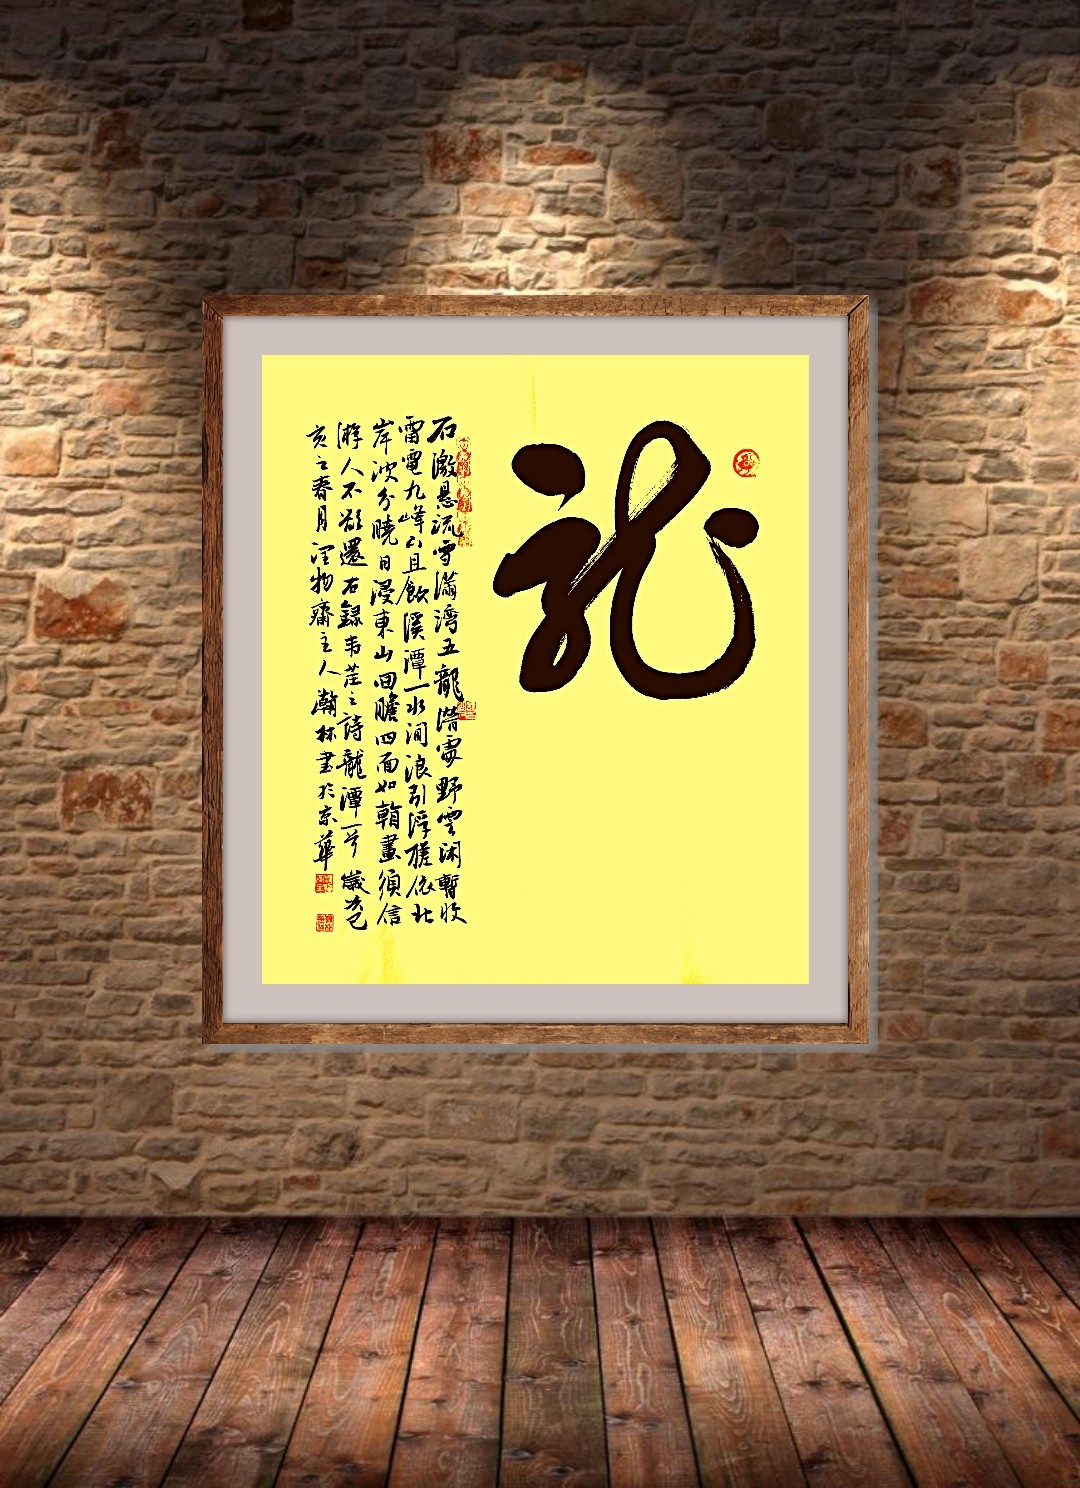 龍
石激悬流雪滿湾五龍潜處野雲闲暫收
雷電九峰下且飲溪潭一水间浪引浮槎依北
岸波分曉日浸東山回瞻四面如看畫須信
游人不欲還右録韦莊之詩龍潭一首歲己
亥之春月润物齋主人瀚林書於京華